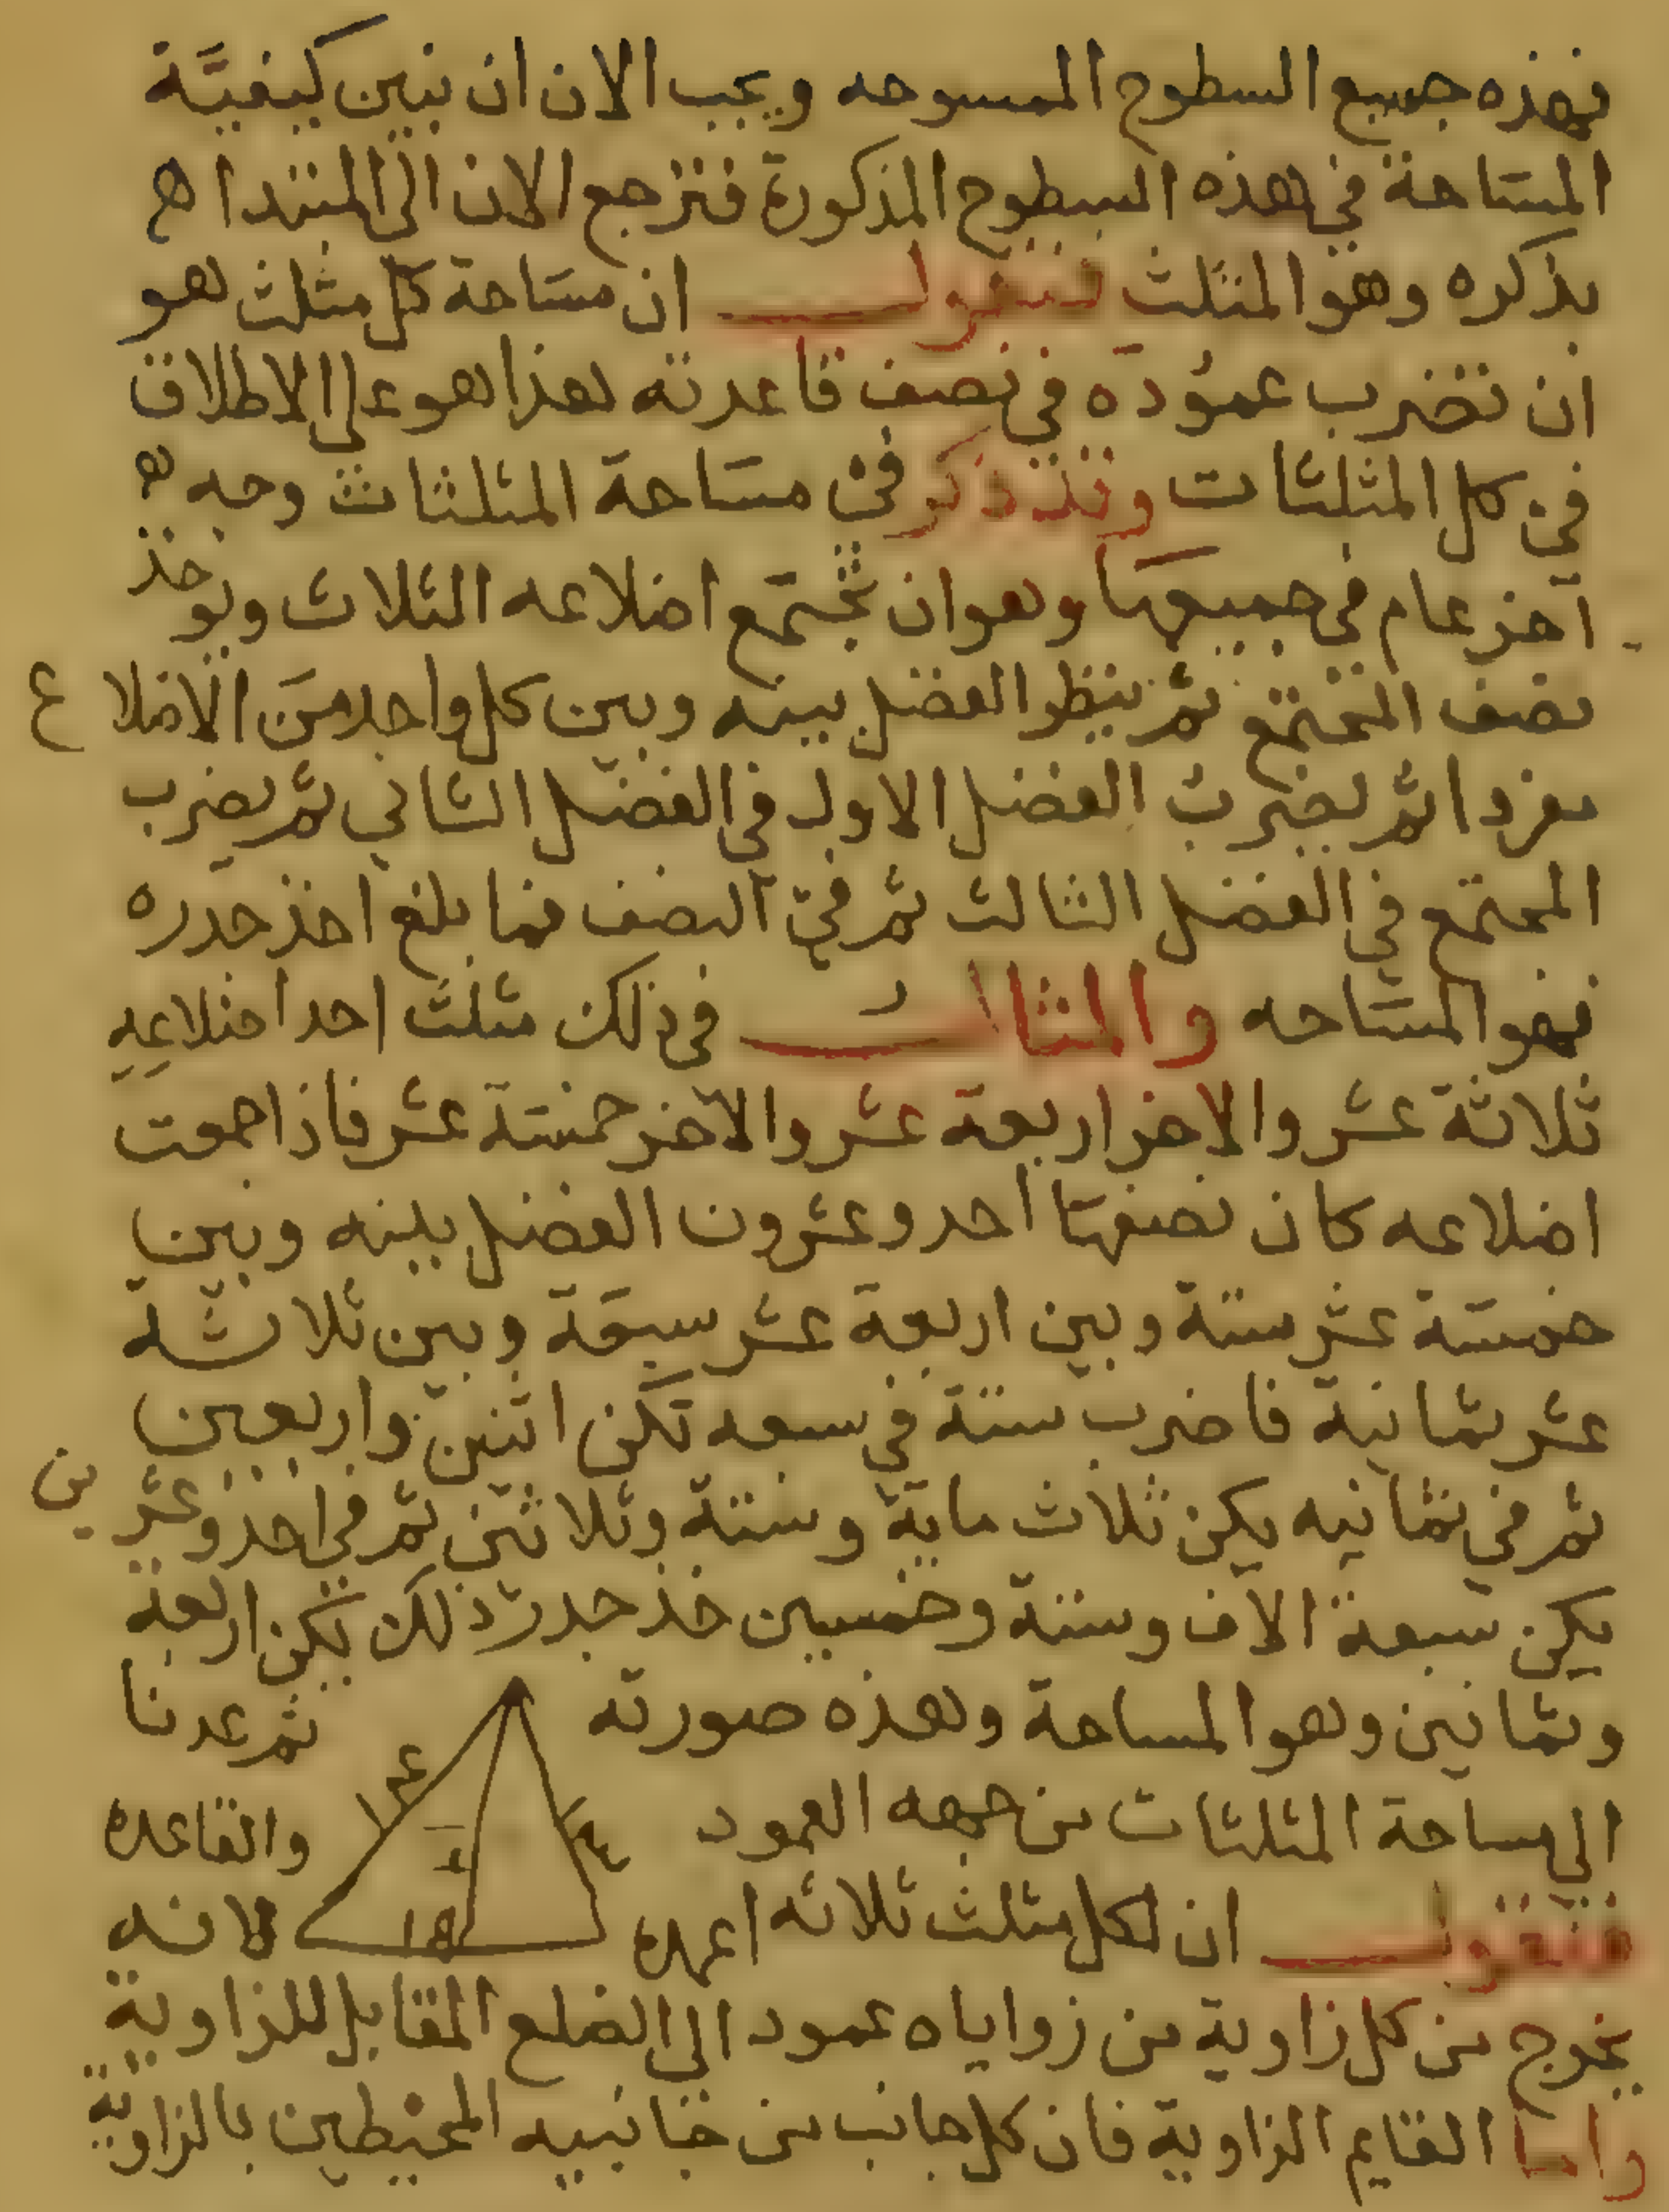 فهذه جميع السطوح الممسوحه ويجب الان ان نبين كيفيّة
المسَاحة في هذه السطوح المذكورة فنرجع الان الى المبتدا
بذكره وهو المثلث فنقول ان مسَاحة كل مثلث هو
ان تضرب عموُدَه في نصف قاعدته هذا هو على الاطلاق
في كل المثلثات ونذكر في مسَاحة المثلثات وجه
آخر عام في جميعها وهو ان تجتمَع اضلاعه الثلاث ويوخذ
نصف المجتمع ثم ينظر الفضل بينه وبين كل واحد منَ الاضلاع
مفردا ثم يضرب الفضل الاول في الفضل الثاني ثم يضرب
المجتمع في الفضل الثالث ثم في النصف فما بلغ اخذ جدره
فهو المسَاحه والمثال في ذلك مثلث احد اضلاعِهِ
ثلاثة عشر والاخر اربعة عشر والآخر خمسَة عشر فاذا جمعت
اضلاعه كان نصفهَا احد وعشرون الفضل بينه وبين
خمسَة عشر ستة وبين اربعة عشر سبعَة وبين ثلاثة
عشر ثمانية فاضرب ستة في سبعه تكن اثنين واربعين
ثم في ثمانيه يكن ثلاث ماية وستة وثلاثين ثم في احد وعشرين
يكن سبعة الاف وستة وخمسين خذ جدر ذلك يكن اربعة
وثمانين وهو المساحة وهذه صورته ثم عدنا
الى مساحة المثلثات من جهه العمود والقاعده
فنقول ان لكل مثلث ثلاثه اعمده لانه
يخرج من كل زاوية من زواياه عمود الى الضلع المقابل للزاوية
واما القايم الزاوية فان كل جانب من جانبيه المحيطين بالزاوية